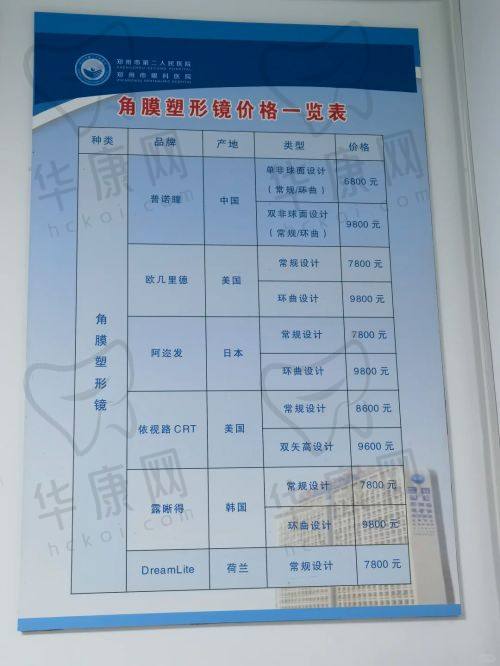 郑州市第二人民医院
ZHENGZHOU SECOND HOSPITAL
郑州市眼科医院
角膜塑形镜价格一览表
种类 品牌 产地 类型 价格
角膜塑形镜
普诺瞳 中国
单非球面设计
(常规/环曲) 6800 元
双非球面设计
(常规/环曲) 9800 元
欧几里德 美国
常规设计 7800 元
环曲设计 9800 元
阿迩发 日本
常规设计 7800 元
环曲设计 9800 元
依视路 CRT 美国
常规设计 8600 元
双矢高设计 9600 元
露晰得 韩国
常规设计 7800 元
环曲设计 9800 元
DreamLite 荷兰 常规设计 7800 元
华康网
hckoi.com
华康网
hckoi.com
华康网
hckoi.com
华康网
hckoi.com